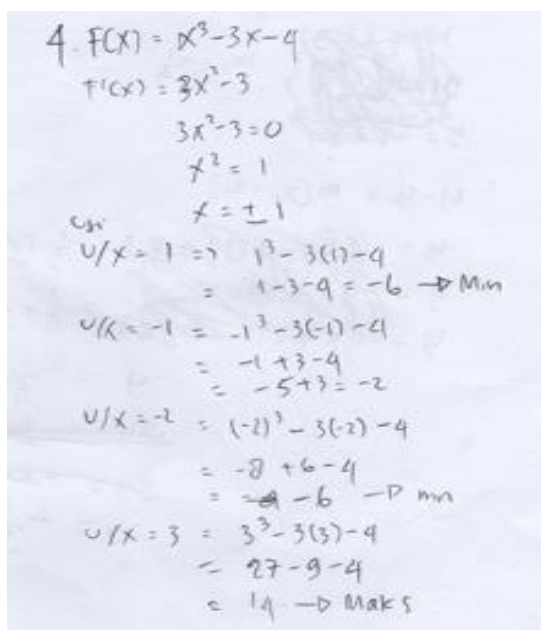 4. F(x) = x³-3x-4
f'(x) = 3x²-3
3x²-3=0
x² = 1
x = ± 1
Uji
U/x = 1 => 1³ - 3(1)-4
= 1-3-4 = -6 → Min
U/x = -1 = -1³-3(-1)-4
= -1+3-4
= -5+3 = -2
U/x = -2 = (-2)³ - 3(-2) -4
= -8 +6-4
= -6 → min
U/x = 3 = 3³-3(3)-4
= 27-9-4
= 14 → Maks